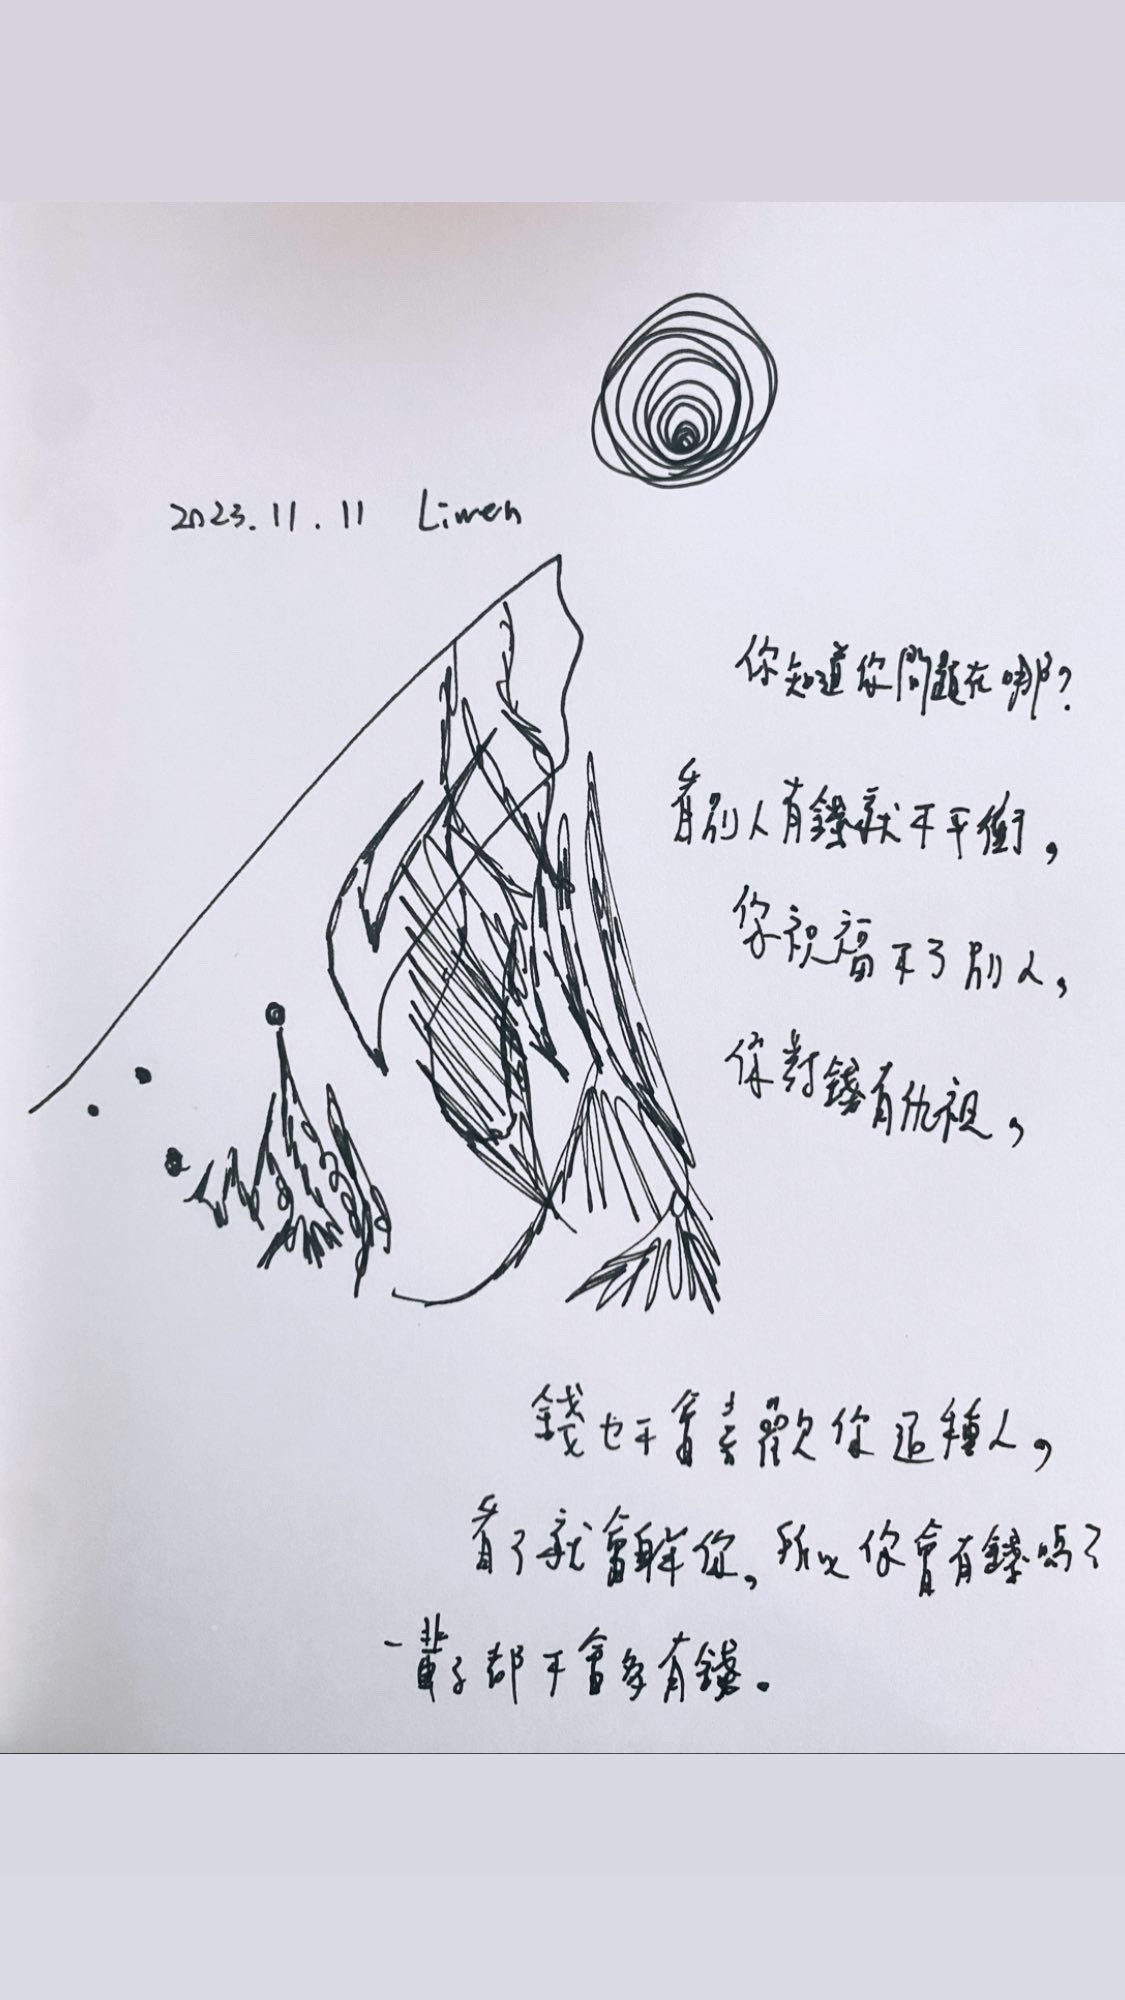 2023.11.11 Liwen
你知道你問題在哪?
看別人有錢就不平衡,
你祝福不了別人,
你對錢有仇視,
錢也不會喜歡你這種人,
看了就會躲你,所以你會有錢嗎?
一輩子都不會多有錢。